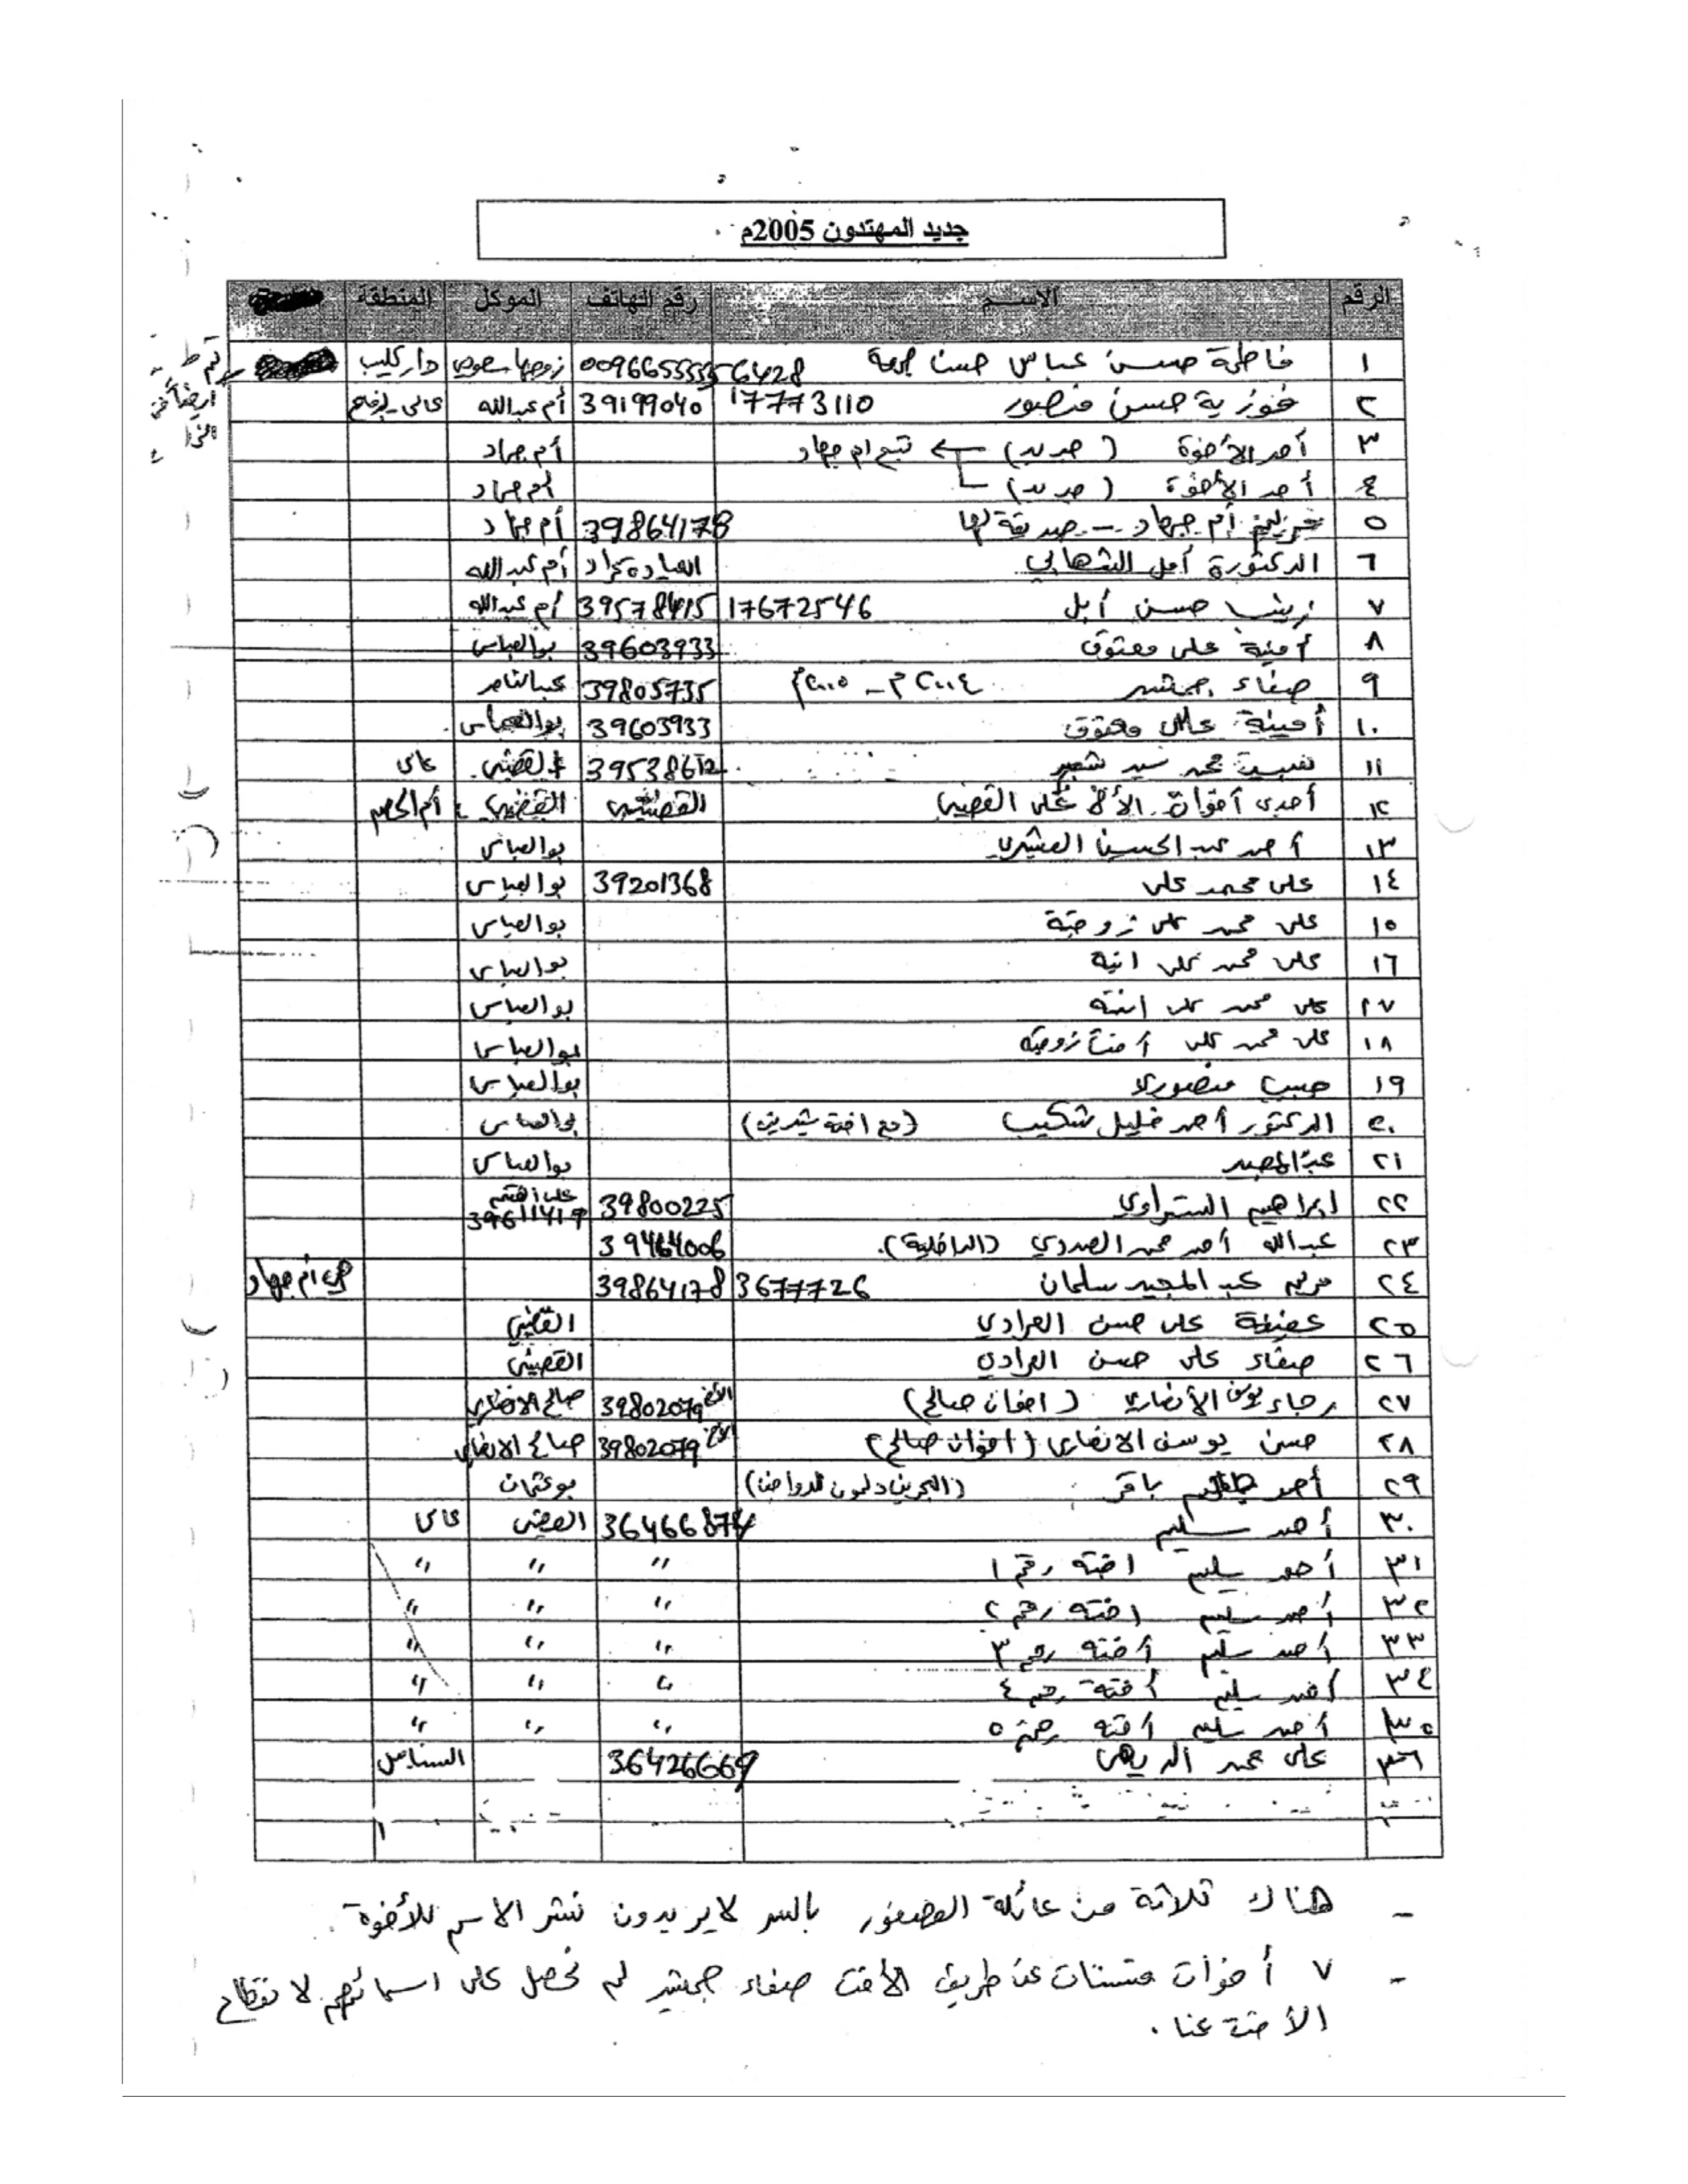 جديد المهتدون 2005م
الرقم الاسم رقم الهاتف الموكل المنطقة
١ فاطمة حسن عباس حسن جمعة 00966555556428 زوجها سعودي دار كليب
٢ فوزية حسن منصور 17773110 39199040 أم عبدالله عالي
٣ أحد الأخوة (جديد) تبع ام جهاد أم جهاد
٤ أحد الأخوة (جديد) أم جهاد
٥ أم جهاد - صديقة لها 39864178 أم جهاد
٦ الدكتورة أمل الشهابي العيادة أم عبدالله
٧ زينب حسن أبل 17672546 39578415 أم عبدالله
٨ أمينة علي معتوق 39603933 بوالعباس
٩ صفاء جمشير ٢٠٠٤م - ٢٠٠٥م 39805735
١٠ أمينة علي معتوق 39603933 بوالعباس
١١ محمد سيد شبر 39538612 القضيبي عالي
١٢ أحدى أخوات الأخ علي القضيبي القضيبي القضيبي أم الحصم
١٣ أحمد عبدالحسين العشيري بوالعباس
١٤ علي محمد علي 39201368 بوالعباس
١٥ علي محمد علي زوجته بوالعباس
١٦ علي محمد علي ابنه بوالعباس
١٧ علي محمد علي ابنته بوالعباس
١٨ علي محمد علي أخت زوجته بوالعباس
١٩ حبيب منصوري بوالعباس
٢٠ الدكتور أحمد خليل شكيب (مع اخته شيرين) بوالعباس
٢١ بوالعباس
٢٢ ابراهيم الستراوي 39800225 39611419
٢٣ عبدالله أحمد محمد الصددي (الداخلية) 39464006
٢٤ مريم عبد المجيد سلمان 3677726 39864178 أم جهاد
٢٥ علي حسن العرادي القضيبي
٢٦ صفاء علي حسن العرادي القضيبي
٢٧ رجاء يوسف الأنصاري (اخوان صالح) الأخ 39802079 صالح الانصاري
٢٨ حسن يوسف الانصاري (اخوان صالح) الأخ 39802079 صالح الانصاري
٢٩ أحمد باقر (البحرين دلمون للدواجن) بوعثمان
٣٠ أحمد سليم 36466874 القضيبي عالي
٣١ أحمد سليم اخته رقم ١ " " "
٣٢ أحمد سليم اخته رقم ٢ " " "
٣٣ أحمد سليم أخته رقم ٣ " " "
٣٤ أحمد سليم أخته رقم ٤ " " "
٣٥ أحمد سليم أخته رقم ٥ " " "
٣٦ علي الديهي 36426669 السنابس
- هناك ثلاثة من عائلة العصفور بالسر لا يريدون نشر الاسم للأخوة.
- ٧ أخوات متسننات عن طريق الأخت صفاء جمشير لم نحصل على اسمائهم لانقطاع
الأخت عنا.